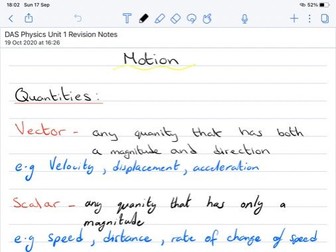 18:02 Sun 17 Sep 52%
DAS Physics Unit 1 Revision Notes
19 Oct 2020 at 16:26
Motion
Quantities:
Vector - any quanity that has both
a magnitude and direction
e.g Velocity, displacement, acceleration
Scalar - any quanity that has only a
magnitude
e.g speed, distance, rate of change of speed